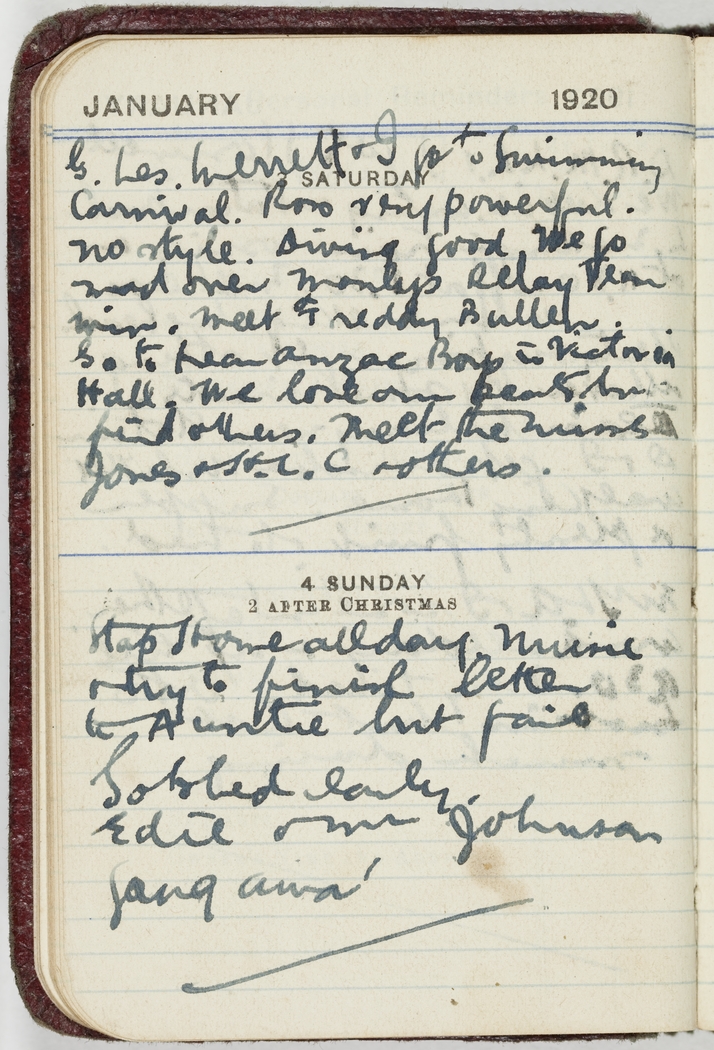 JANUARY 1920
G. Les. Merrett & I go to Swimming
SATURDAY
Carnival. Ross very powerful.
no style. Diving good We go
mad over Manlys Relay Team
win. Meet Freddy Bullen.
Go to hear Anzac Boys in Victoria
Hall. We lose our seats but
find others. Meet the misses
Jones & St. L. C & others.
4 SUNDAY
2 AFTER CHRISTMAS
Stap Home all day. Music
& try to finish letter
to Auntie but fail
Go to bed early.
Edie & Johnson
gang awa'